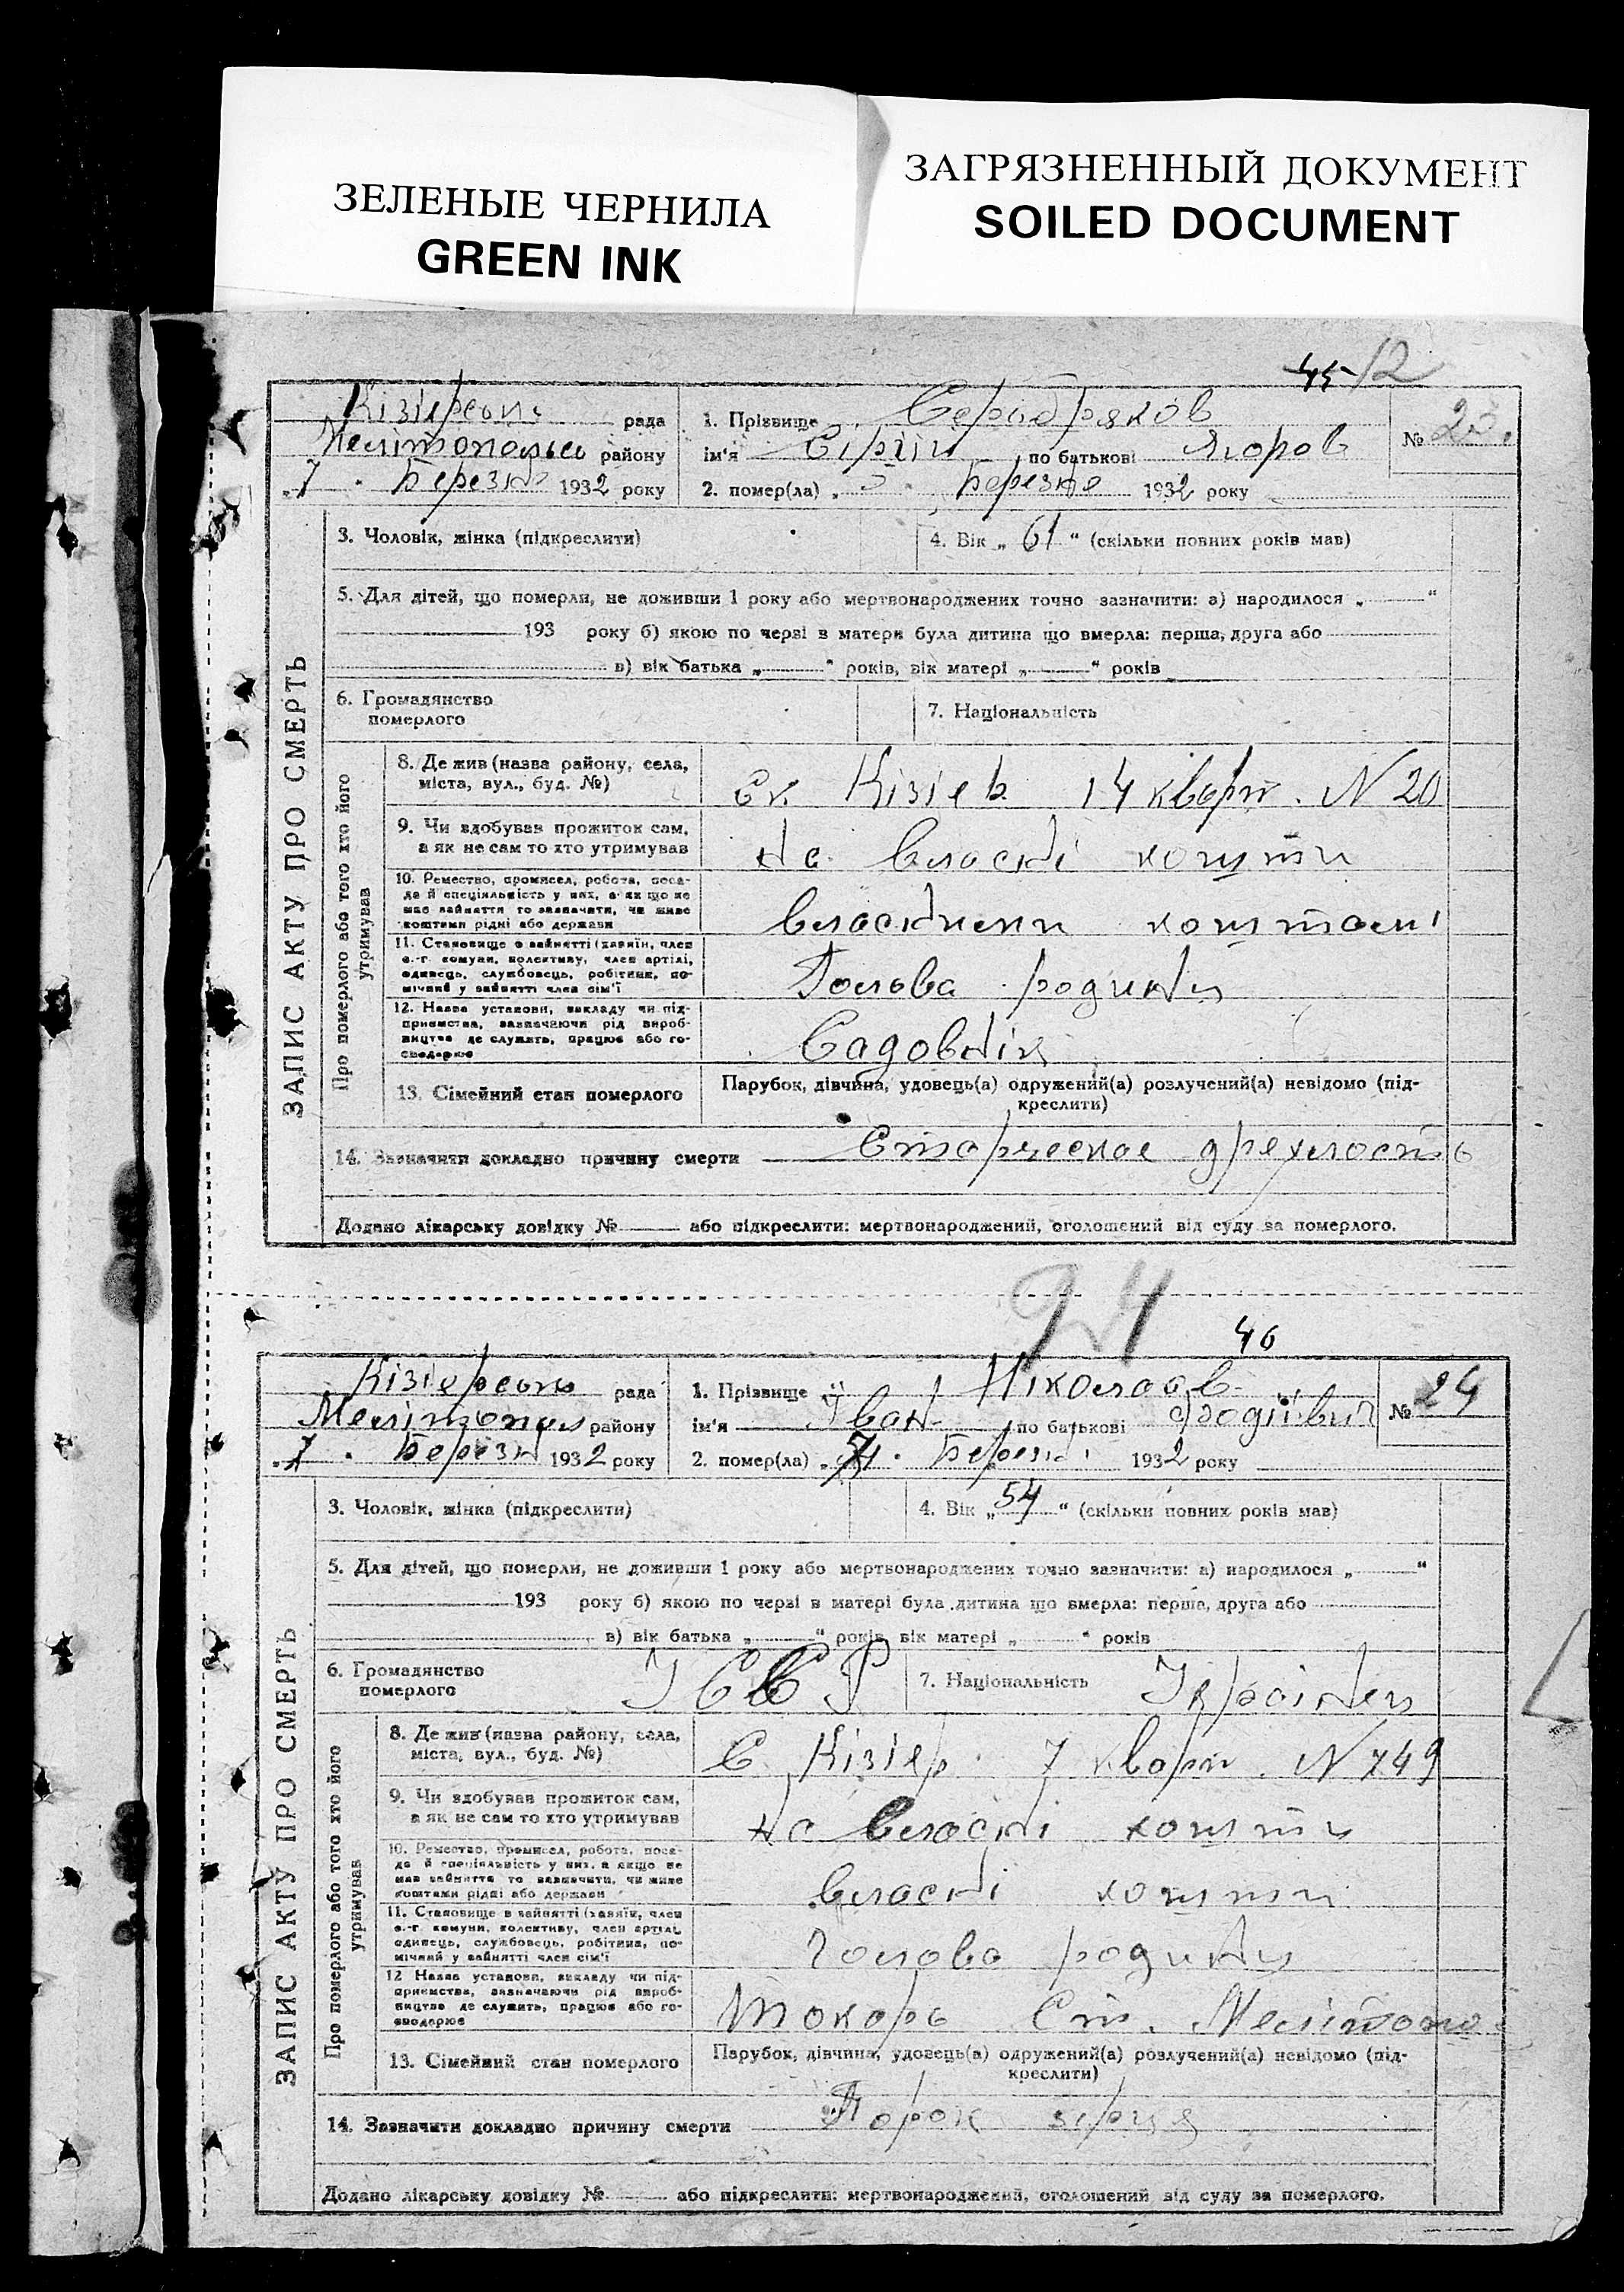 ЗЕЛЕНЫЕ ЧЕРНИЛА
GREEN INK
ЗАГРЯЗНЕННЫЙ ДОКУМЕНТ
SOILED DOCUMENT
45 12
рада
району
„7 " Березня 1932 року
1. Прізвище
ім'я Сергій по батькові Ягоров
2. помер(ла) „5 " Березня 1932 року
№ 23.
ЗАПИС АКТУ ПРО СМЕРТЬ
3. Чоловік, жінка (підкреслити)
4. Вік „ 61 " (скільки повних років мав)
5. Для дітей, що померли, не доживши 1 року або мертвонароджених точно зазначити: а) народилося „ "
193 року б) якою по черзі в матери була дитина що вмерла: перша, друга або
в) вік батька „ " років, вік матері „ " років
6. Громадянство
померлого
7. Національність
Про померлого або того хто його
утримував
8. Де жив (назва району, села,
міста, вул., буд. №)
14 кварт. N 20
9. Чи здобував прожиток сам,
а як не сам то хто утримував
на власні кошти
10. Ремество, промисел, робота, поса-
да й спеціяльність у них, а як що не
має зайняття то зазначити, чи живе
коштами рідні або держави
власними коштамі
11. Становище в зайнятті (хазяїн, член
с.-г. комуни, колективу, член артілі,
одинець, службовець, робітник, по-
мічний у зайнятті член сім'ї
Голова родини
12. Назва установи, викладу чи під-
приємства, зазначаючи рід вироб-
ництва де служить, працює або го-
сподарює
Садовнік
13. Сімейний стан померлого
Парубок, дівчина, удовець(а) одружений(а) розлучений(а) невідомо (під-
креслити)
14. Зазначити докладно причину смерти Старческая дрехлость
Додано лікарську довідку № або підкреслити: мертвонароджений, оголошений від суду за померлого.
24
46
рада
району
„7 " Березня 1932 року
1. Прізвище Ніколаєв
ім'я Іван по батькові
2. помер(ла) „ " Березня 1932 року
№ 24
ЗАПИС АКТУ ПРО СМЕРТЬ
3. Чоловік, жінка (підкреслити)
4. Вік „ 54 " (скільки повних років мав)
5. Для дітей, що померли, не доживши 1 року або мертвонароджених точно зазначити: а) народилося „ "
193 року б) якою по черзі в матері була дитина що вмерла: перша, друга або
в) вік батька „ " років, вік матері „ " років
6. Громадянство
померлого
УССР
7. Національність Українец
Про померлого або того хто його
утримував
8. Де жив (назва району, села,
міста, вул., буд. №)
С. Кізієр. 7 кварт. N 749
9. Чи здобував прожиток сам,
а як не сам то хто утримував
на власні кошти
10. Ремество, промисел, робота, поса-
да й спеціяльність у них, а якщо не
має зайняття то зазначити, чи живе
коштами рідні або держави
власні кошти
11. Становище в зайнятті (хазяїн, член
с.-г. комуни, колективу, член артілі,
одинець, службовець, робітник, по-
мічний у зайнятті член сім'ї
Голова родини
12 Назва установи, викладу чи під-
приємства, зазначаючи рід вироб-
ництва де служить, працює або го-
сподарює
Токарь Ст. Мелітопо
13. Сімейний стан померлого
Парубок, дівчина, удовець(а) одружений(а) розлучений(а) невідомо (під-
креслити)
14. Зазначити докладно причину смерти Порок серця
Додано лікарську довідку № або підкреслити: мертвонароджений, оголошений від суду за померлого.